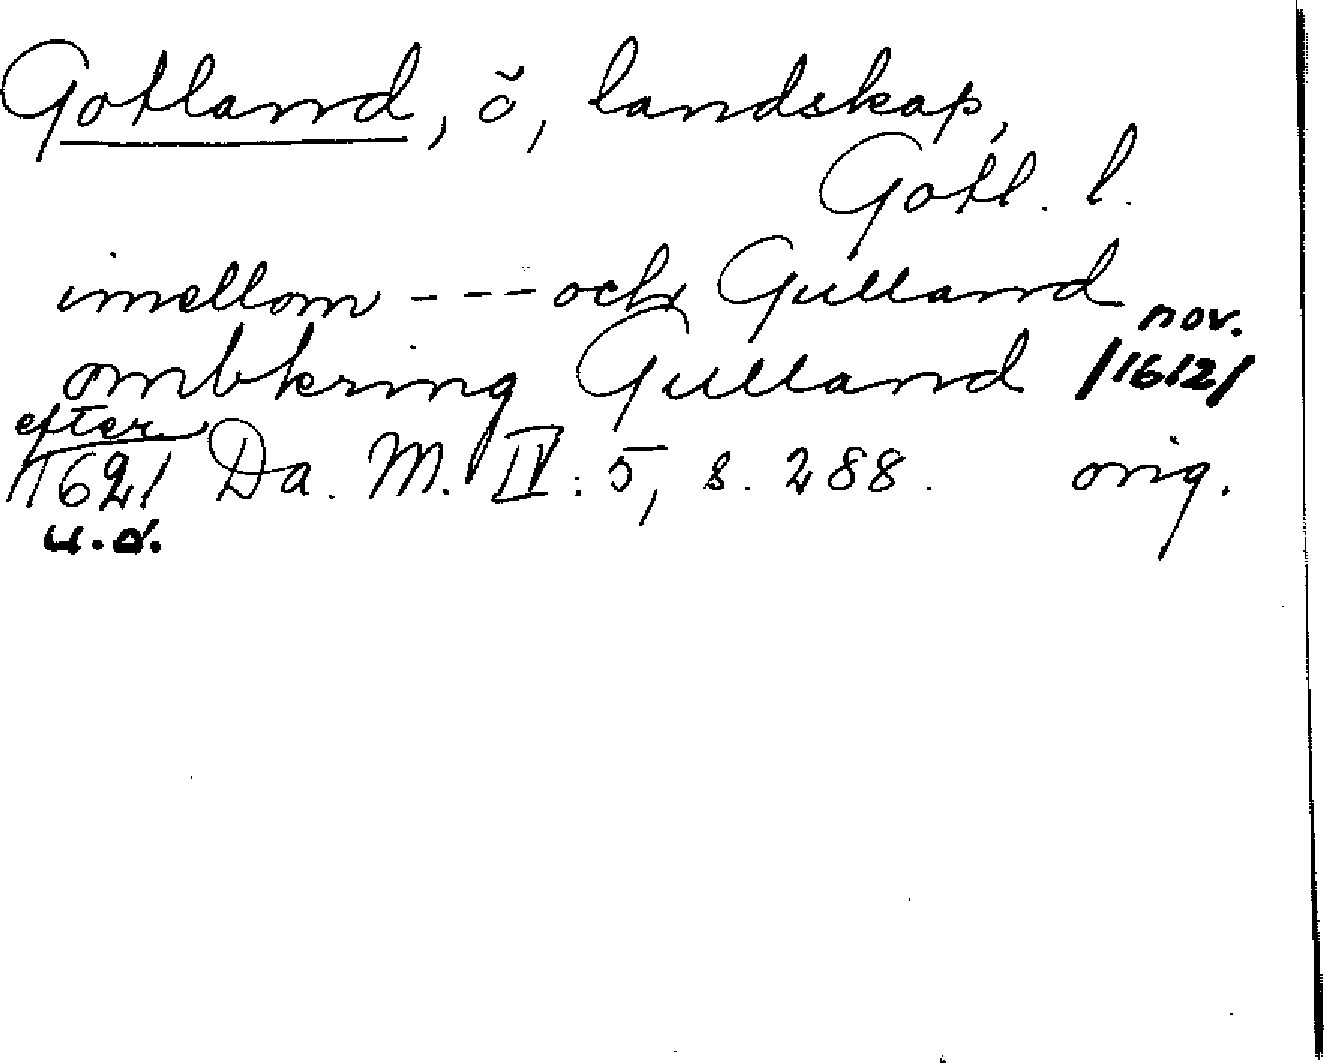 Gotland, ö, landskap,
Gotl. l.
imellom --- och Gulland
nov.
ombkring Gulland /1612/
efter
/1621 Da. M. IV: 5, s. 288. orig.
u.d.